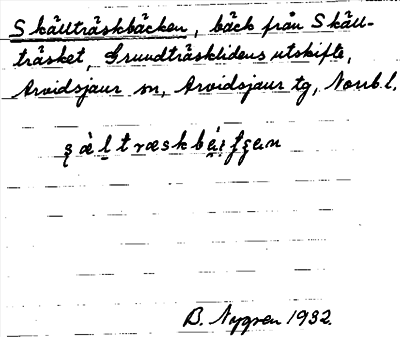 Skällträskbäcken, bäck från Skäll-
träsket, Grundträsklidens utskifte,
Arvidsjaur sn, Arvidsjaur tg, Norrb. l.
B. Nygren 1932.